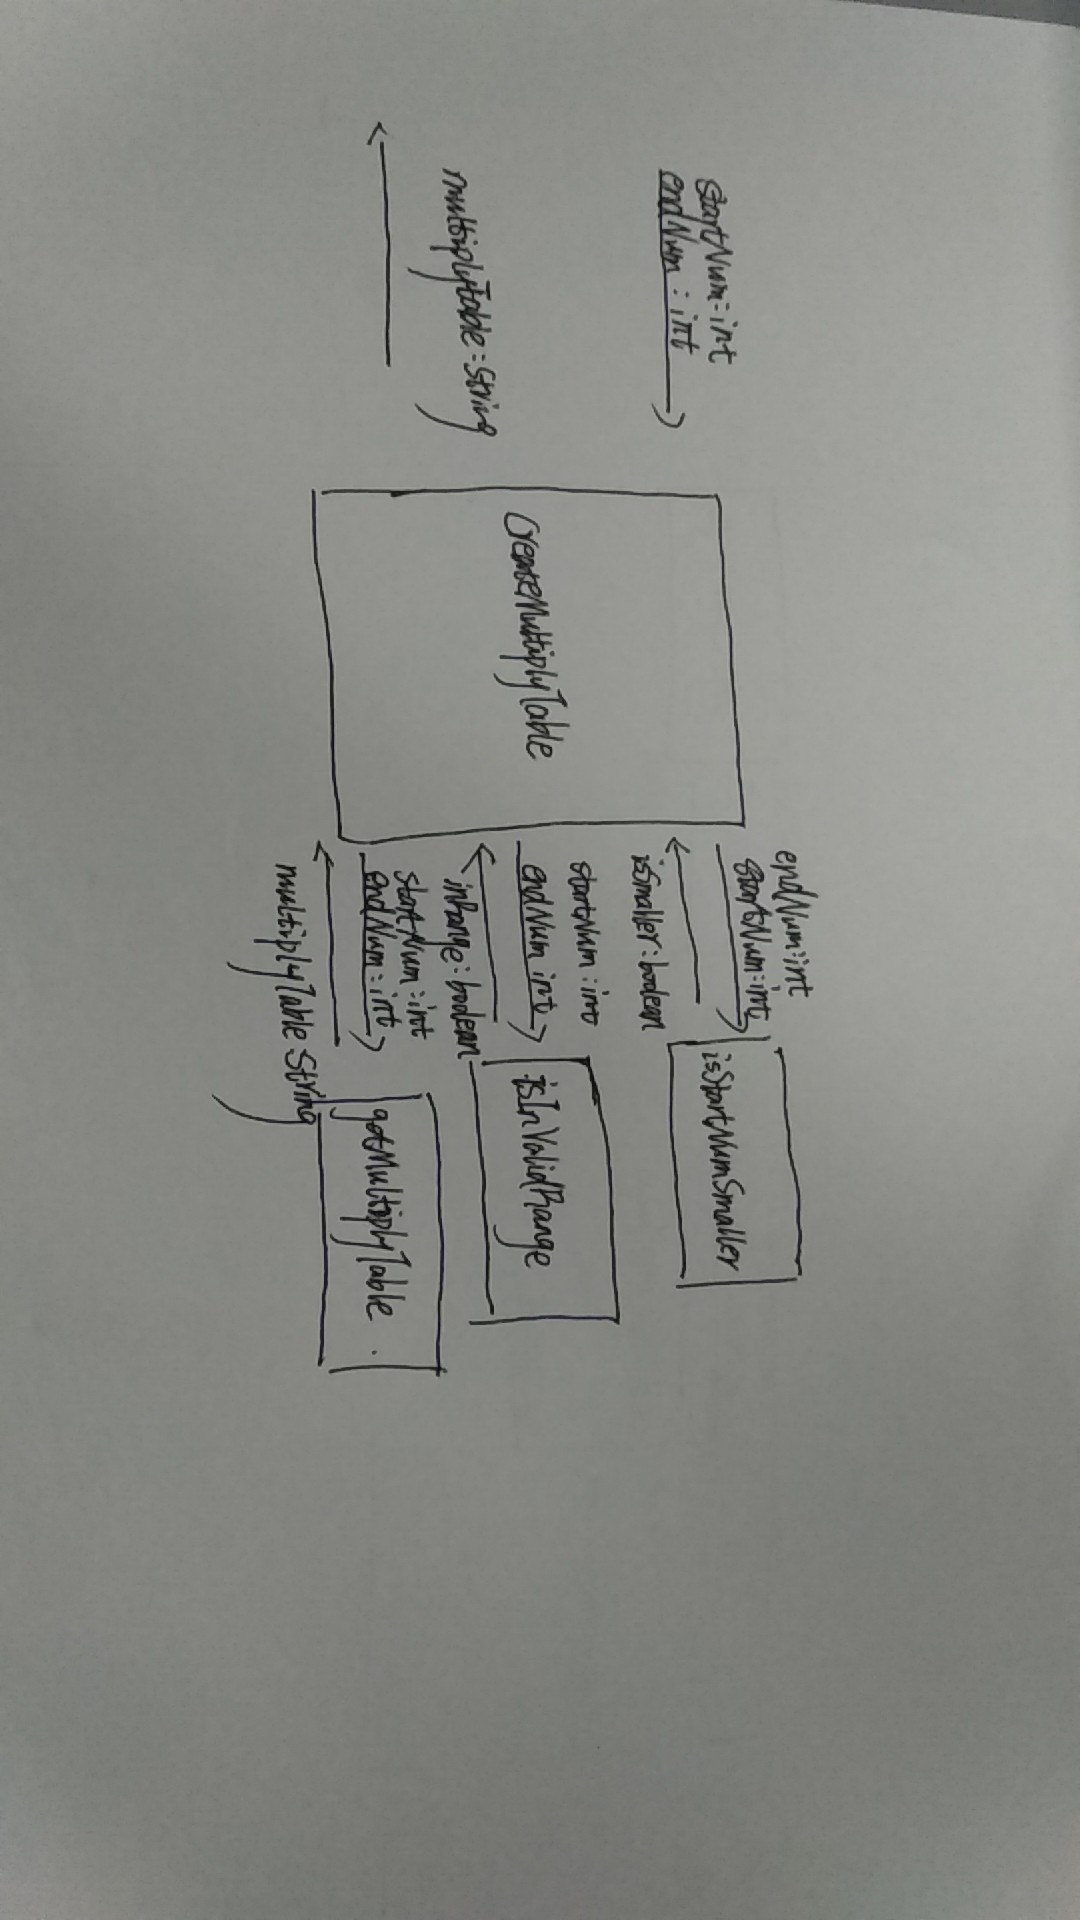 startNum:int
endNum:int
multiplyTable:String
CreateMultiplyTable
endNum:int
startNum:int
isSmaller:boolean
isStartNumSmaller
startNum:int
endNum int
inRange:boolean
isInValidRange
startNum:int
endNum:int
multiplyTable String
getMultiplyTable.